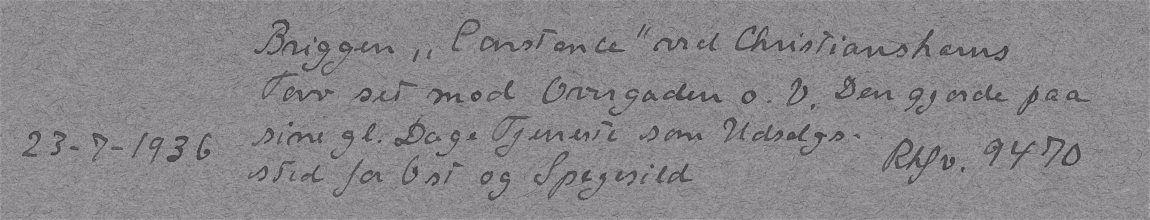 Briggen „Constance" ved Christianshavns
Torv set mod Overgaden o. V. Den gjorde paa
sine gl. Dage Tjeneste som Udsalgs-
23-7-1936
sted for Ost og Spegesild
9470